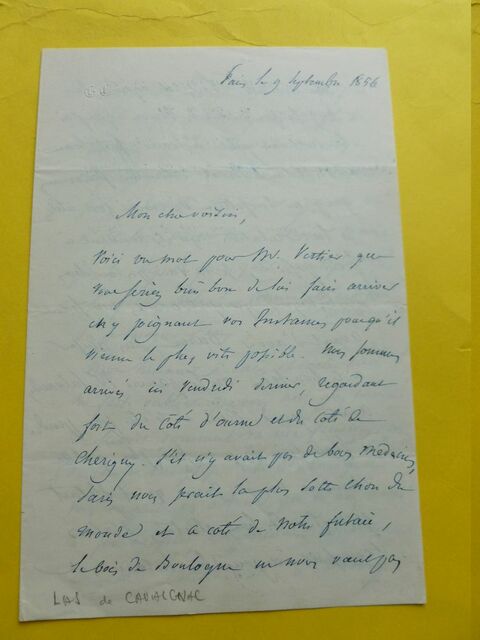 Paris le 9 septembre 1856
Mon cher voisin,
Voici un mot pour Mr. que
vous seriez bien bon de lui faire arriver
en y joignant vos instances pour qu'il
vienne le plus vite possible. nous sommes
arrivés ici Vendredi dernier, regardant
fort du côté d'ourne et du côté de
Cherigny. S'il n'y avait pas de bons medecins,
Paris nous serait la plus sotte chose du
monde et a coté de notre futaie,
le bois de Boulogne ne nous vaut pas
LAS de CAVAIGNAC